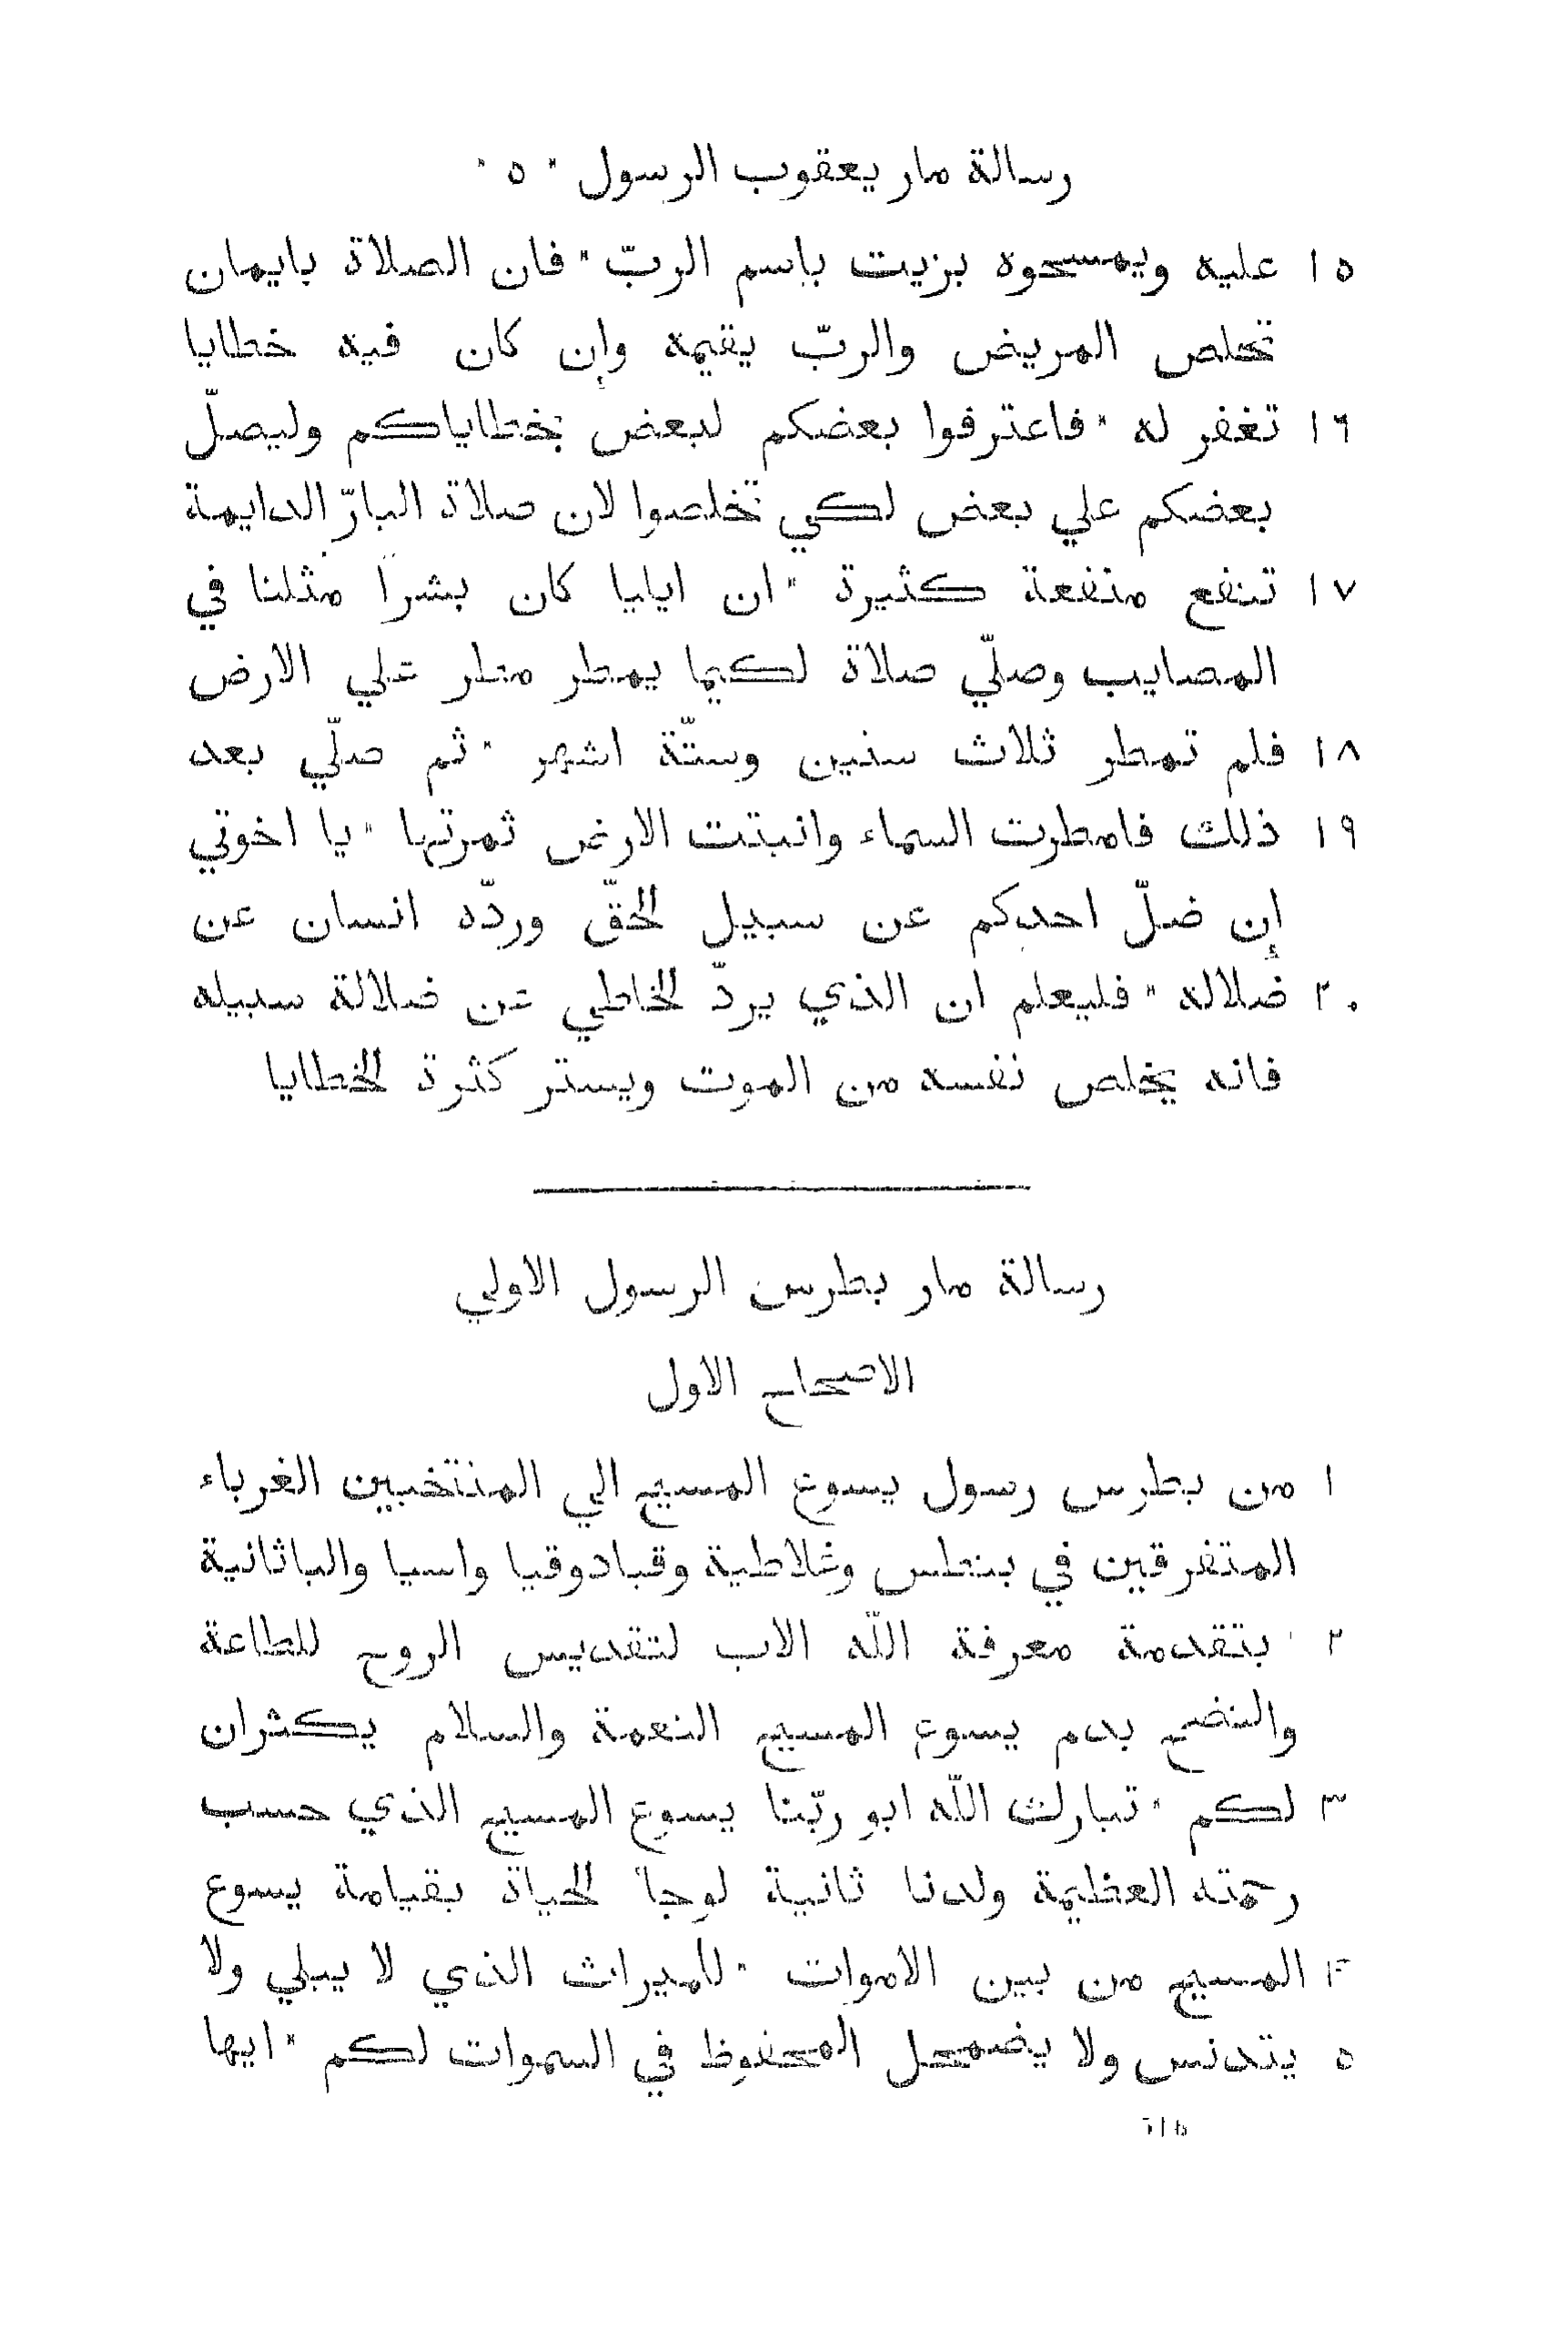 رسالة مار يعقوب الرسول * ٥ *
١٥ عليه ويمسحوه بزيت بإسم الربّ * فان الصلاة بايمان
تخلص المريض والربّ يقيمه وإن كان فيه خطايا
١٦ تغفر له * فاعترفوا بعضكم لبعض بخطاياكم وليصلّ
بعضكم علي بعض لكي تخلصوا لان صلاة البارّ الدايمة
١٧ تنفع منفعة كثيرة * ان ايليا كان بشراً مثلنا في
المصايب وصلّي صلاة لكيما يمطر مطر علي الارض
١٨ فلم تمطر ثلاث سنين وستّة اشهر * ثم صلّي بعد
١٩ ذلك فامطرت السماء وانبتت الارض ثمرتها * يا اخوتي
إن ضلّ احدكم عن سبيل الحقّ وردّه انسان عن
٢٠ ضلاله * فليعلم ان الذي يردّ الخاطي عن ضلالة سبيله
فانه يخلص نفسه من الموت ويستر كثرة الخطايا
رسالة مار بطرس الرسول الاولي
الاصحاح الاول
١ من بطرس رسول يسوع المسيح الي المنتخبين الغرباء
المتفرقين في بنطس وغلاطية وقبادوقيا واسيا والباثانية
٢ * بتقدمة معرفة اللّه الاب لتقديس الروح للطاعة
والنضح بدم يسوع المسيح النعمة والسلام يكثران
٣ لكم * تبارك اللّه ابو ربّنا يسوع المسيح الذي حسب
رحمته العظيمة ولدنا ثانية لرجاً الحياة بقيامة يسوع
٤ المسيح من بين الاموات * للميراث الذي لا يبلي ولا
٥ يتدنس ولا يضمحل المحفوظ في السموات لكم * ايها